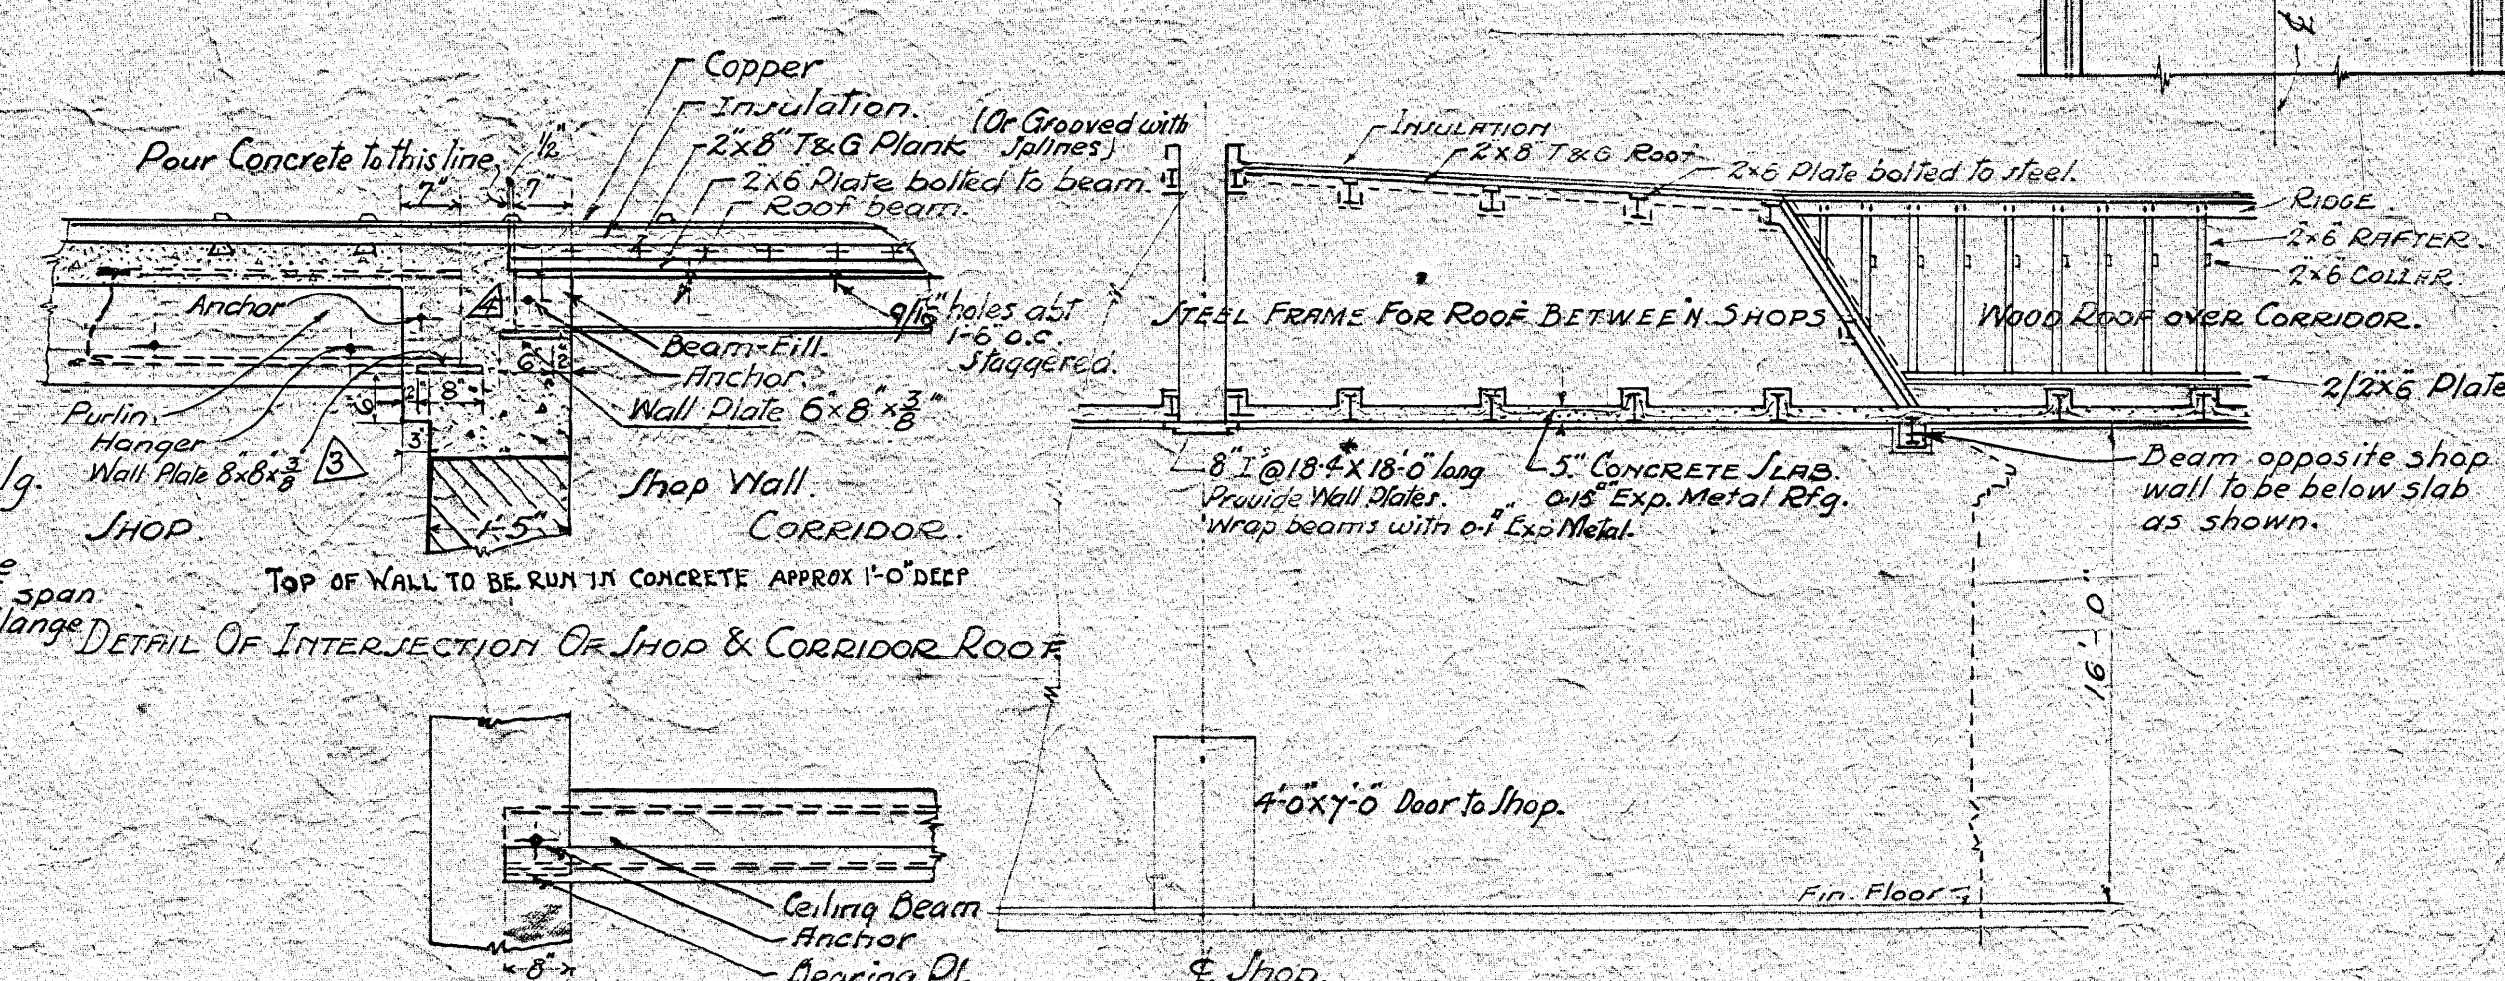 3-
Copper
Insulation.
(Or Grooved with
Splines)
2"x8" T&G Plank
2"x6" Plate bolted to beam.
Roof beam.
Pour Concrete to this line
1/2"
7"
7"
Anchor
4
9/16" holes abt
1'-6" o.c.
Staggered.
Beam-Fill.
Anchor.
Wall Plate 6"x8"x3/8"
6"
2"
2"
8"
6"
3"
Purlin
Hanger
Wall Plate 8"x8"x3/8"
3
lg.
SHOP.
1'-5"
Shop Wall.
CORRIDOR.
TOP OF WALL TO BE RUN IN CONCRETE APPROX 1'-0" DEEP
span
lange
DETAIL OF INTERSECTION OF SHOP & CORRIDOR ROOF
INSULATION
2"x8" T&G Roof
2"x6" Plate bolted to steel.
RIDGE.
2"x6" RAFTER.
2"x6" COLLAR.
STEEL FRAME FOR ROOF BETWEEN SHOPS
WOOD ROOF OVER CORRIDOR.
2/2"x6" Plate
8" I @ 18.4# x 18'-0" long
Provide Wall Plates.
Wrap beams with 0-1" Exp Metal.
5" CONCRETE SLAB.
0-15" Exp. Metal Rfg.
Beam opposite shop
wall to be below slab
as shown.
16'-0"
4'-0"x7'-0" Door to Shop.
Fin. Floor
Ceiling Beam
Anchor
Bearing Pl.
8"
℄ Shop.